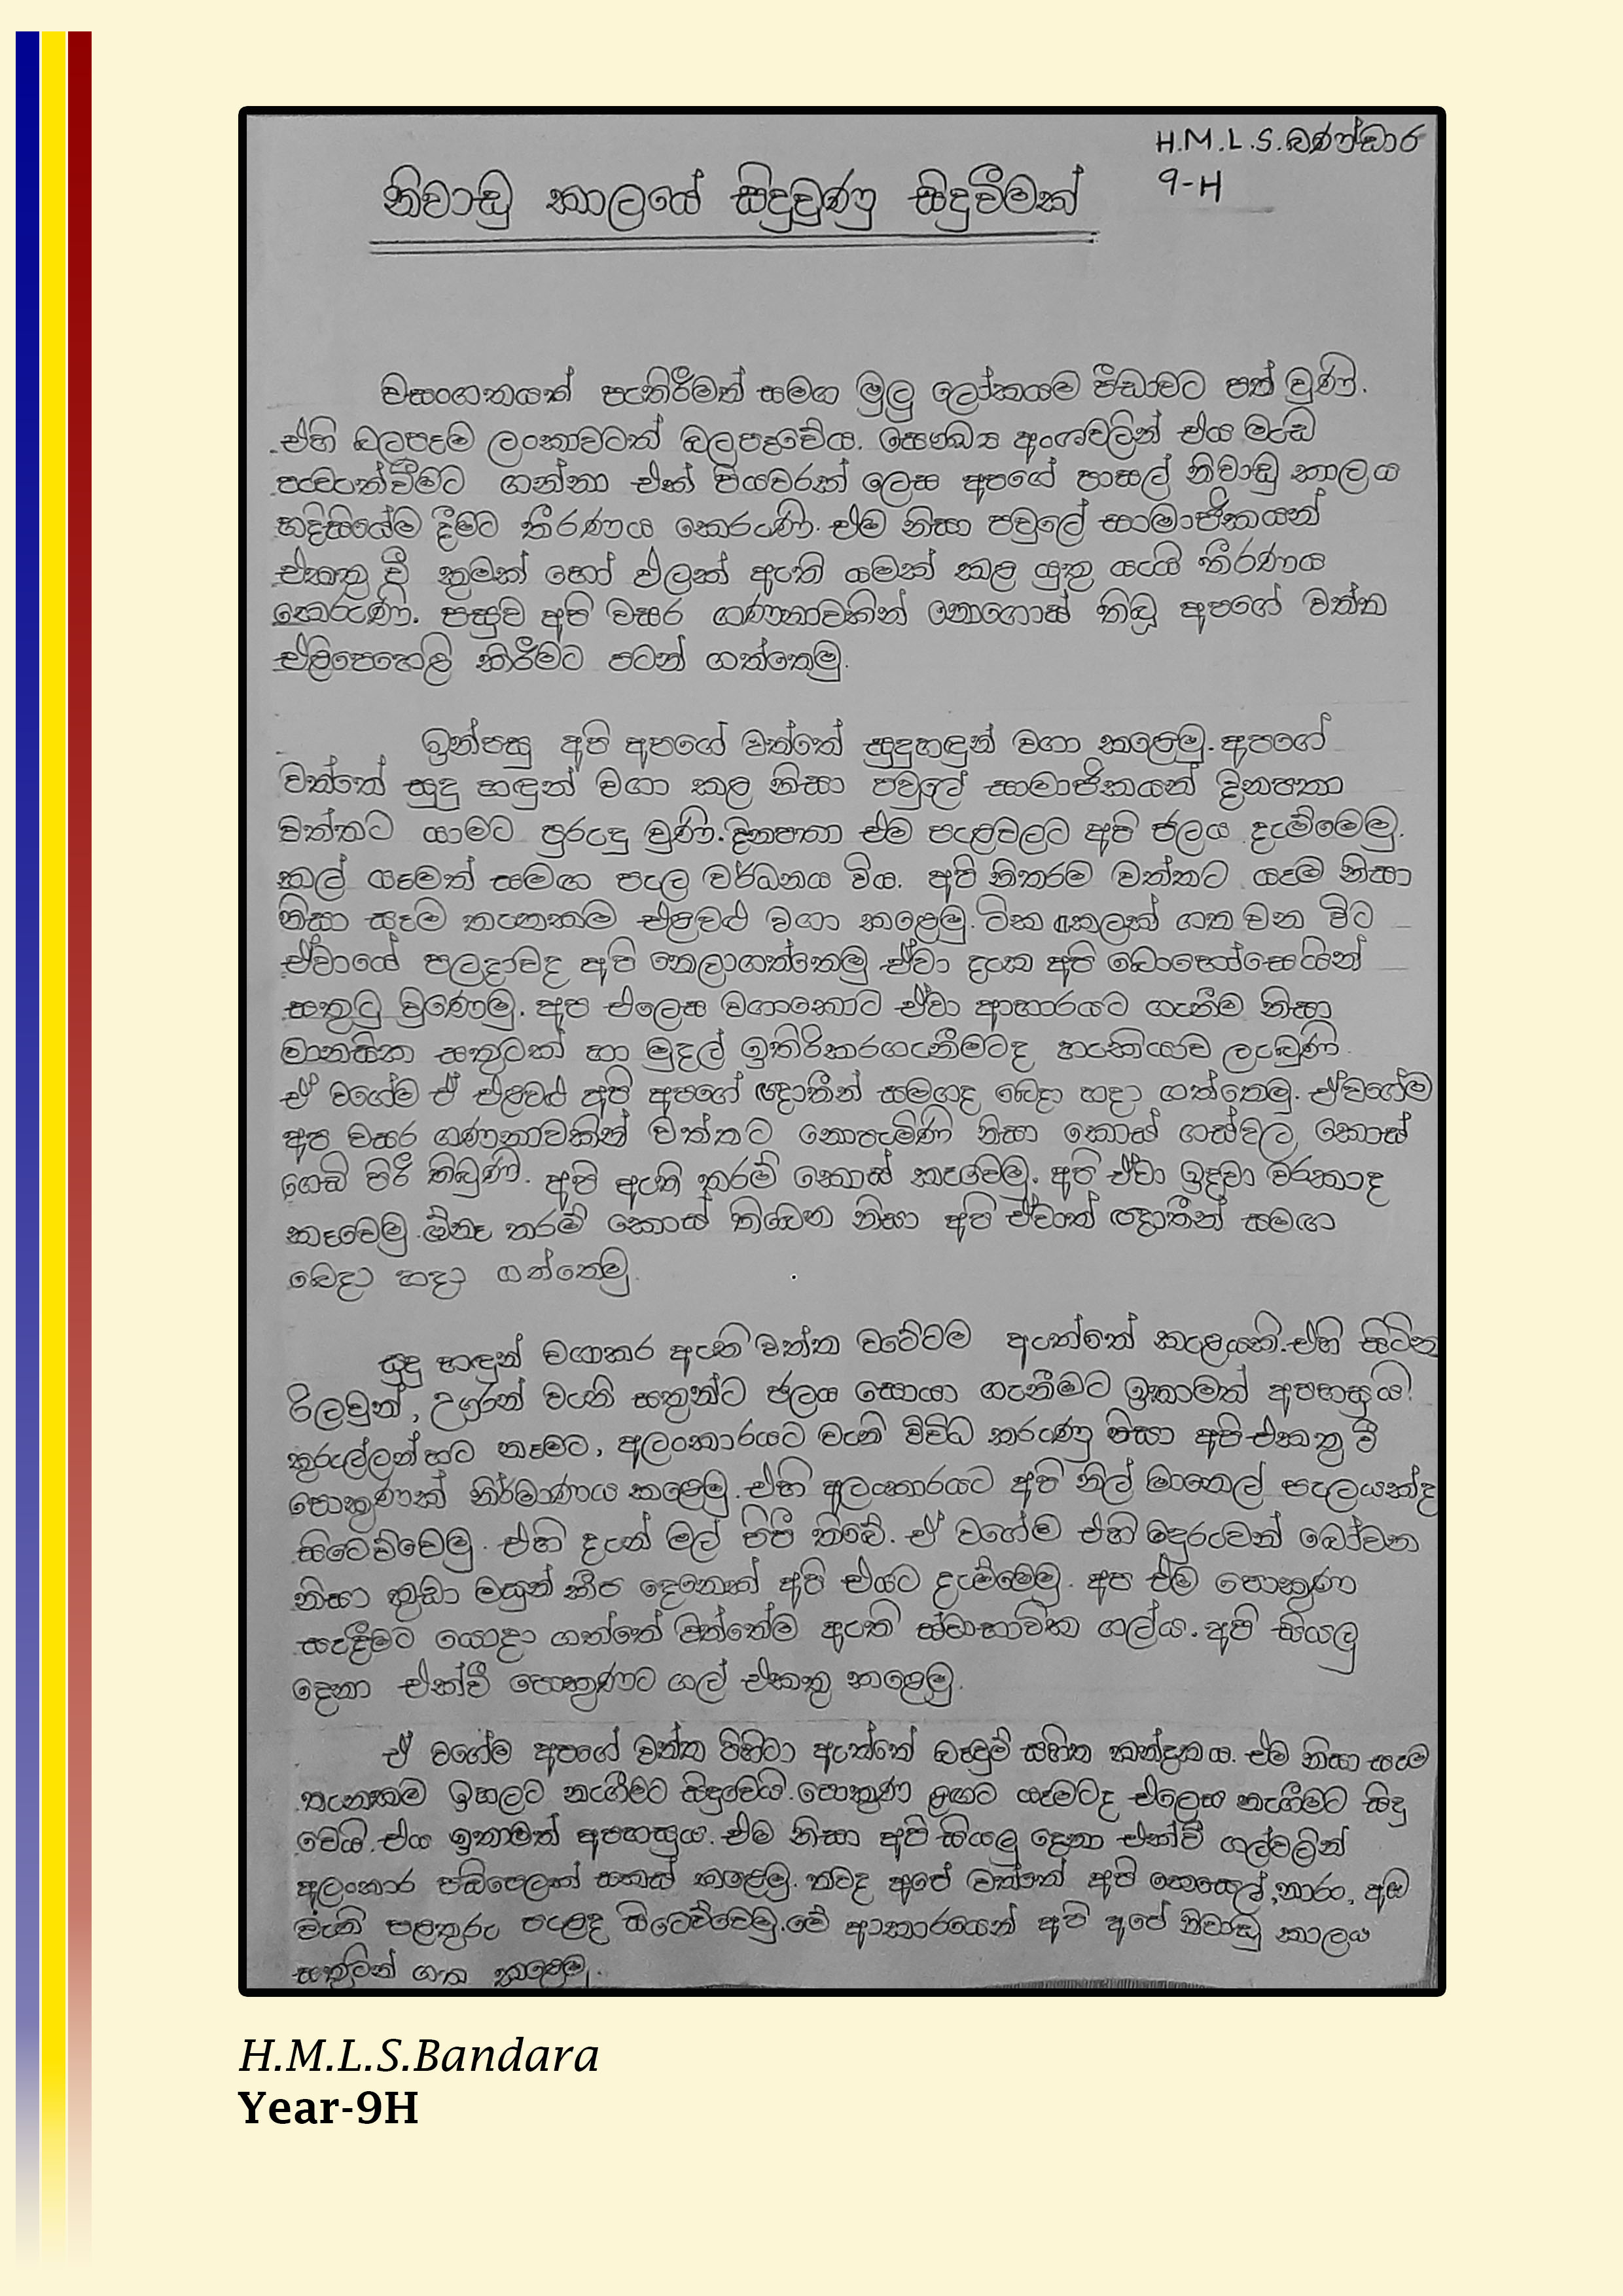 H.M.L.S.බණ්ඩාර
9-H
නිවාඩු කාලයේ සිදුවුණු සිදුවීමක්
වසංගතයක් පැතිරීමත් සමග මුලු ලෝකයම පීඩාවට පත් වුණි.
එහි බලපෑම ලංකාවටත් බලපෑවේය. සෞඛ්‍ය අංශවලින් එය මැඩ
පැවැත්වීමට ගන්නා එක් පියවරක් ලෙස අපගේ පාසල් නිවාඩු කාලය
හදිසියේම දීමට තීරණය කෙරුණි. එම නිසා පවුලේ සාමාජිකයන්
එකතු වී කුමක් හෝ ඵලක් ඇති යමක් කළ යුතු යැයි තීරණය
කෙරුණි. පසුව අපි වසර ගණනාවකින් නොගොස් තිබූ අපගේ වත්ත
එළිපෙහෙළි කිරීමට පටන් ගත්තෙමු.
ඉන්පසු අපි අපගේ වත්තේ සුදුහඳුන් වගා කළෙමු. අපගේ
වත්තේ සුදු හඳුන් වගා කල නිසා පවුලේ සාමාජිකයන් දිනපතා
වත්තට යාමට පුරුදු වුණි. දිනපතා එම පැළවලට අපි ජලය දැම්මෙමු.
කල් යෑමත් සමඟ පැල වර්ධනය විය. අපි නිතරම වත්තට යෑම නිසා
නිසා සෑම තැනකම එළවළු වගා කළෙමු. ටික කලක් ගත වන විට
ඒවායේ පලදාවද අපි නෙලාගත්තෙමු ඒවා දැක අපි බොහෝසෙයින්
සතුටු වුණෙමු. අප එලෙස වගාකොට ඒවා ආහාරයට ගැනීම නිසා
මානසික සතුටක් හා මුදල් ඉතිරිකරගැනීමටද හැකියාව ලැබුණි.
ඒ වගේම ඒ එළවළු අපි අපගේ ඥාතීන් සමගද බෙදා හදා ගත්තෙමු. ඒවගේම
අප වසර ගණනාවකින් වත්තට නොපැමිණි නිසා කොස් ගස්වල කොස්
ගෙඩි පිරී තිබුණි. අපි ඇති තරම් කොස් කෑවෙමු. අපි ඒවා ඉදවා වරකාද
කෑවෙමු. ඕනෑ තරම් කොස් තිබෙන නිසා අපි ඒවාත් ඥාතීන් සමඟ
බෙදා හදා ගත්තෙමු.
සුදු හඳුන් වගාකර ඇති වත්ත වටේටම ඇත්තේ කැලයකි. එහි සිටින
රිලවුන්, උගුරන් වැනි සතුන්ට ජලය සොයා ගැනීමට ඉතාමත් අපහසුයි.
කුරුල්ලන් හට නෑමට, අලංකාරයට වැනි විවිධ කරුණු නිසා අපි එකතු වී
පොකුණක් නිර්මාණය කළෙමු. එහි අලංකාරයට අපි නිල් මානෙල් පැලයක්ද
සිටෙව්වෙමු. එහි දැන් මල් පිපී තිබේ. ඒ වගේම එහි මදුරුවන් බෝවන
නිසා කුඩා මසුන් කීප දෙනෙක් අපි එයට දැම්මෙමු. අප එම පොකුණ
සෑදීමට යොදා ගත්තේ වත්තේම ඇති ස්වාභාවික ගල්ය. අපි සියලු
දෙනා එක්වී පොකුණට ගල් එකතු කළෙමු.
ඒ වගේම අපගේ වත්ත පිහිටා ඇත්තේ බෑවුම් සහිත කන්දකය. එම නිසා සෑම
තැනකම ඉහලට නැගීමට සිදුවෙයි. පොකුණ ළඟට යෑමටද එලෙස නැගීමට සිදු
වෙයි. එය ඉතාමත් අපහසුය. එම නිසා අපි සියලු දෙනා එක්වී ගල්වලින්
අලංකාර පඩිපෙලක් සකස් කළෙමු. තවද අපේ වත්තේ අපි කෙසෙල්, නාරං, අඹ
වැනි පළතුරු පැළද සිටෙව්වෙමු. මේ ආකාරයෙන් අපි අපේ නිවාඩු කාලය
සතුටින් ගත කළෙමු.
H.M.L.S.Bandara
Year-9H